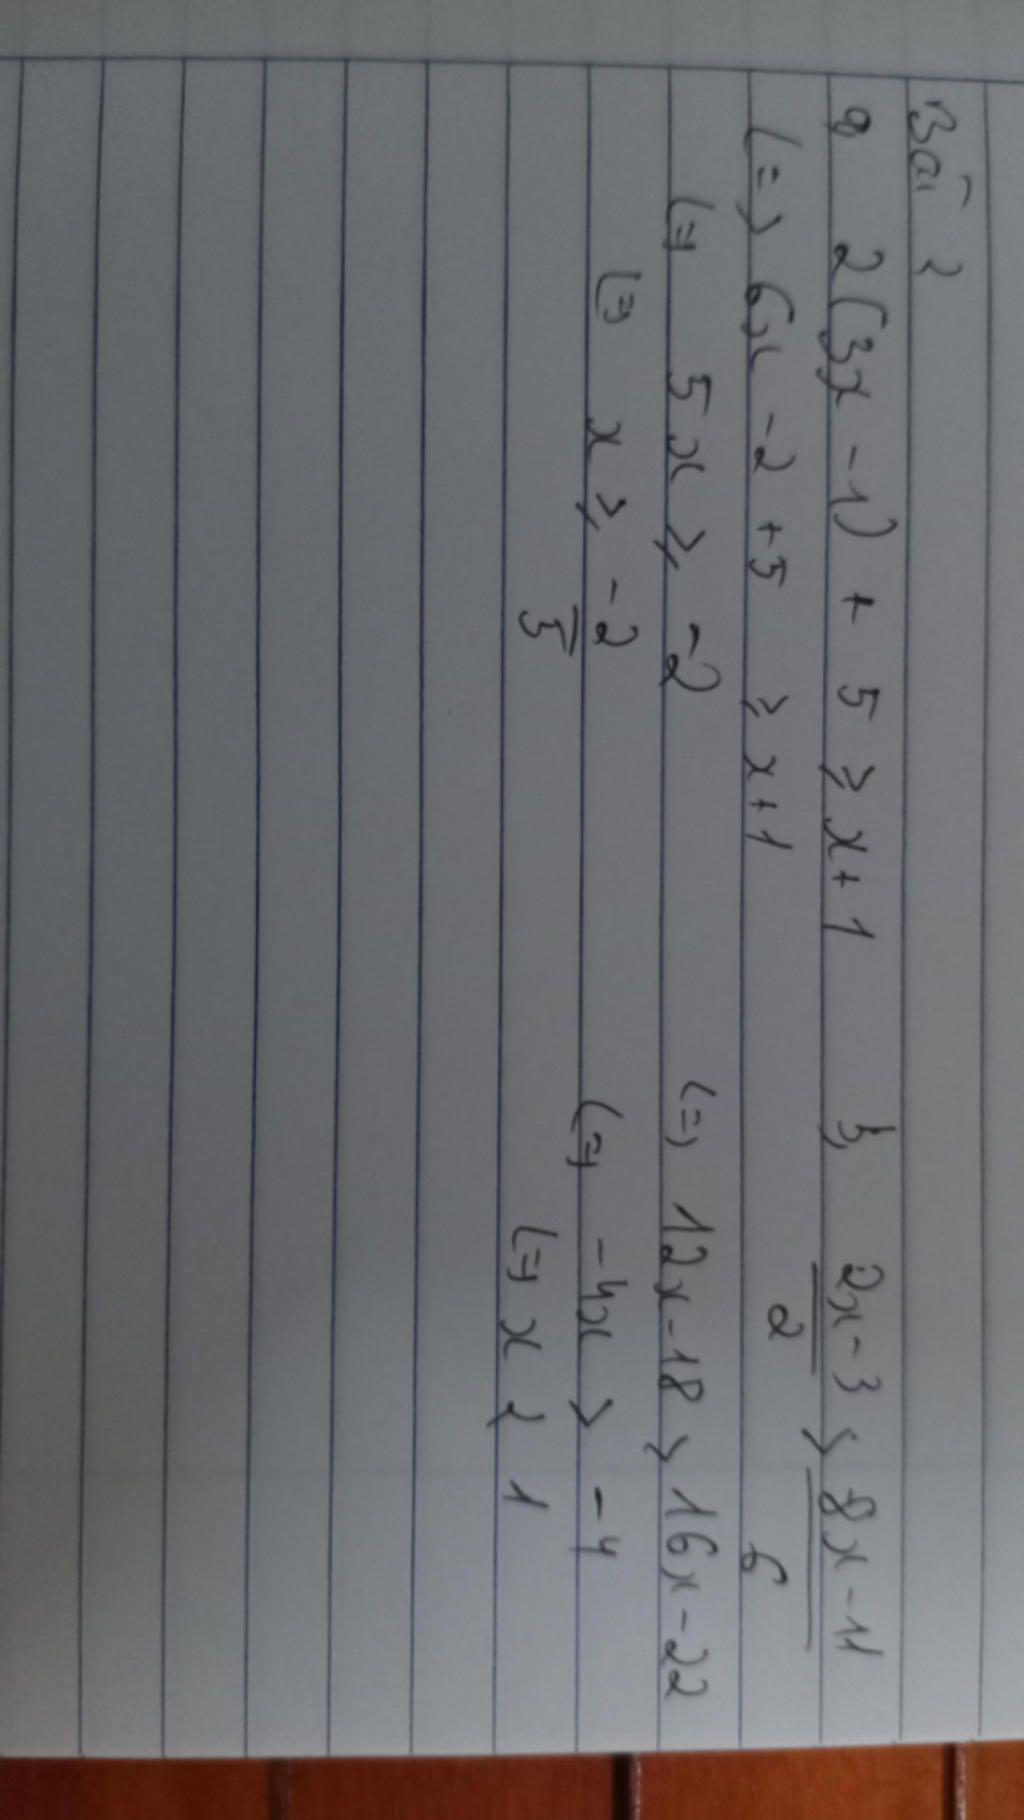 Bài 2
a, 2(3x - 1) + 5 ≥ x + 1
(=) 6x - 2 + 5 ≥ x + 1
(=) 5x ≥ -2
(=) x ≥ -2/5
b, (2x - 3)/2 > (8x - 11)/6
(=) 12x - 18 > 16x - 22
(=) -4x > -4
(=) x < 1